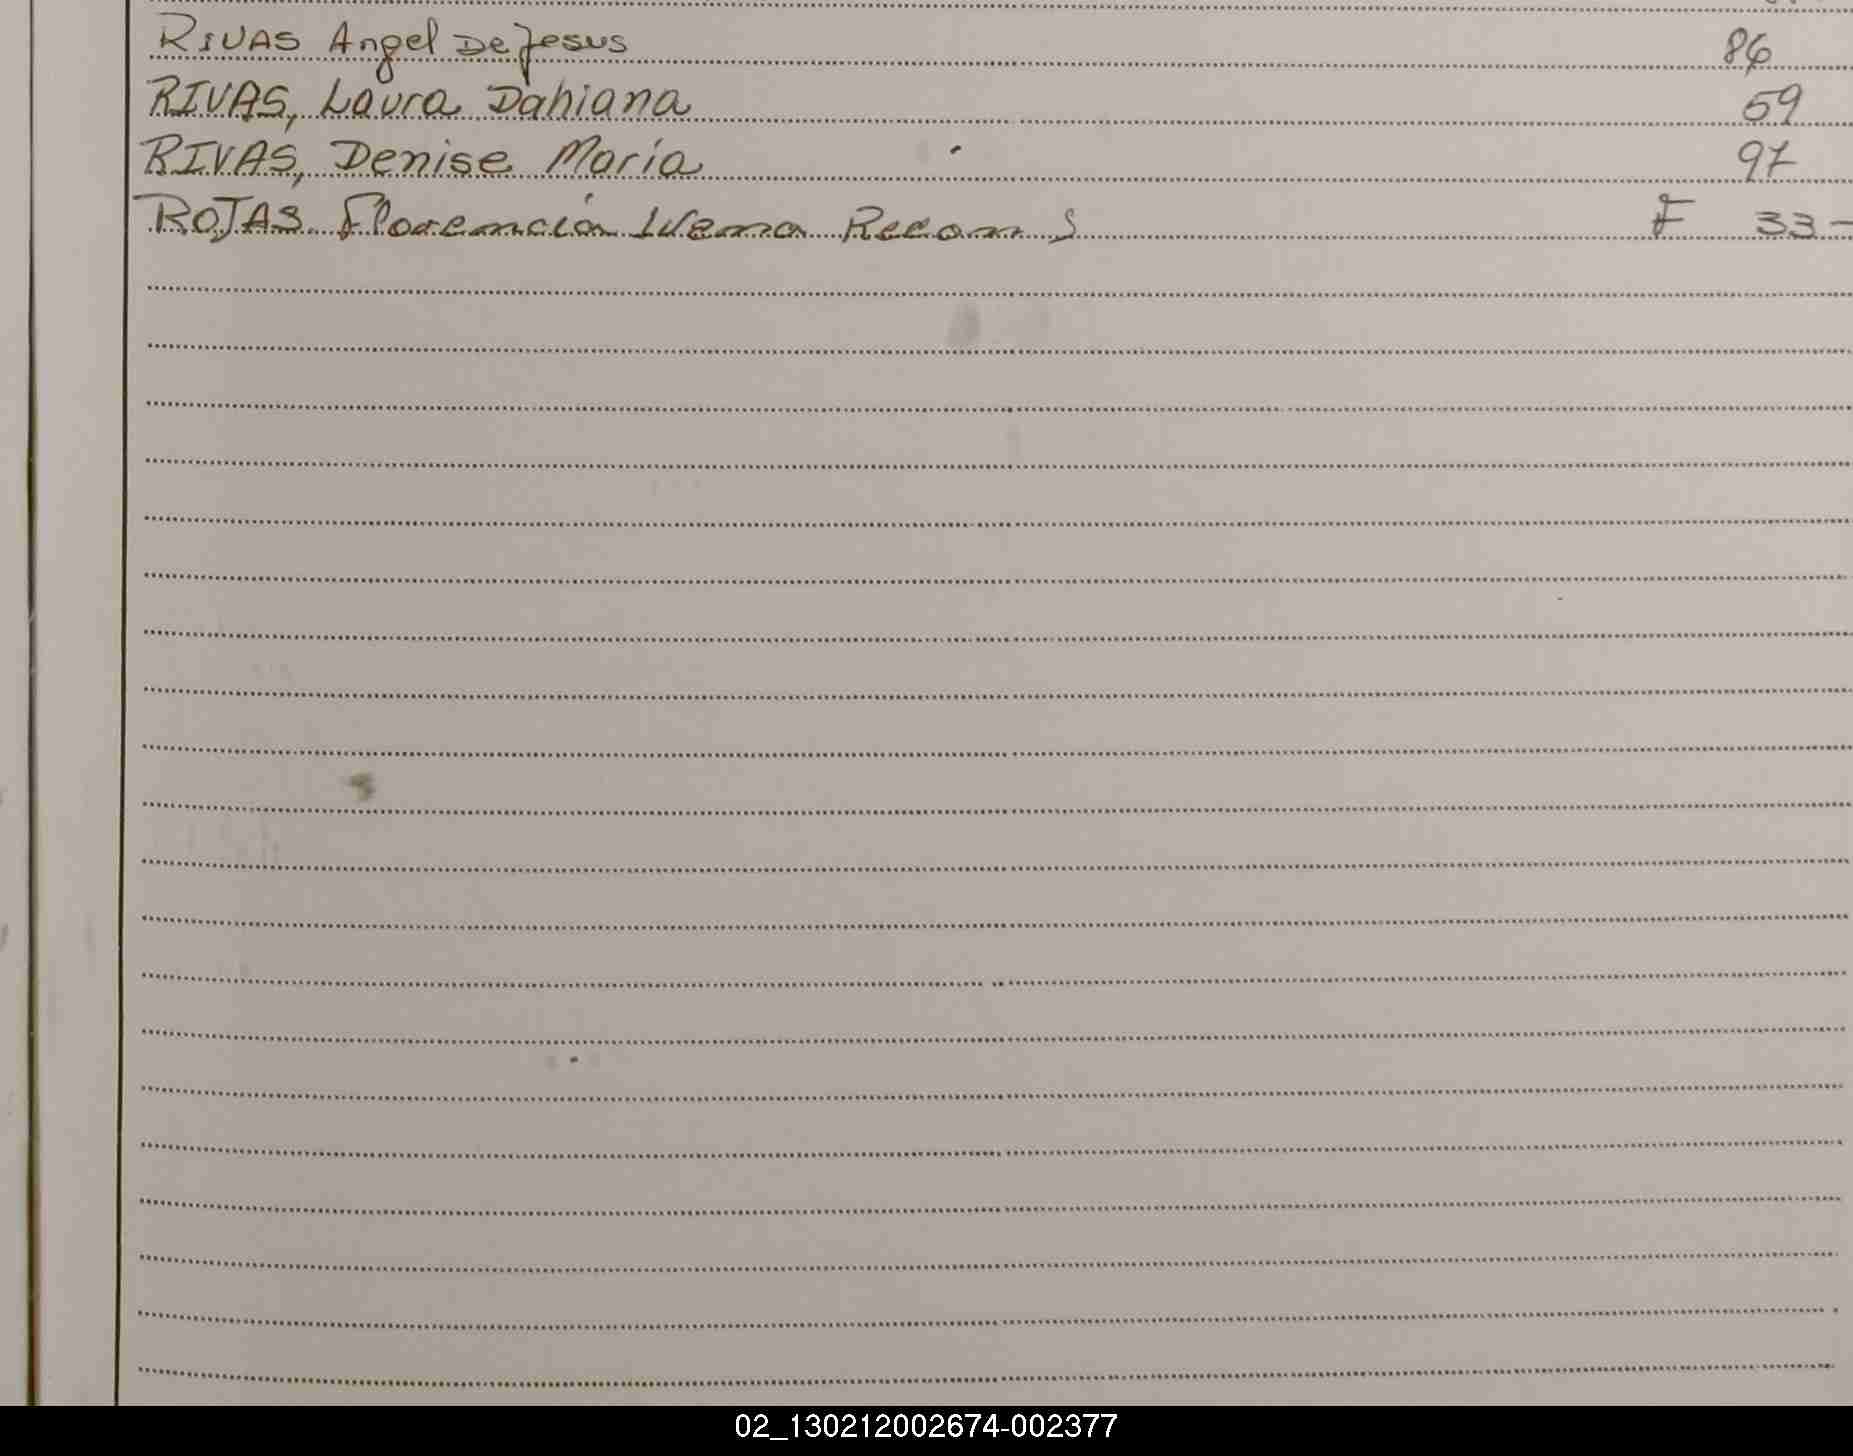 RIVAS Angel De Jesus 86
RIVAS, Laura Dahiana 59
RIVAS, Denise María 97
ROJAS Florencia F 33-
02_130212002674-002377